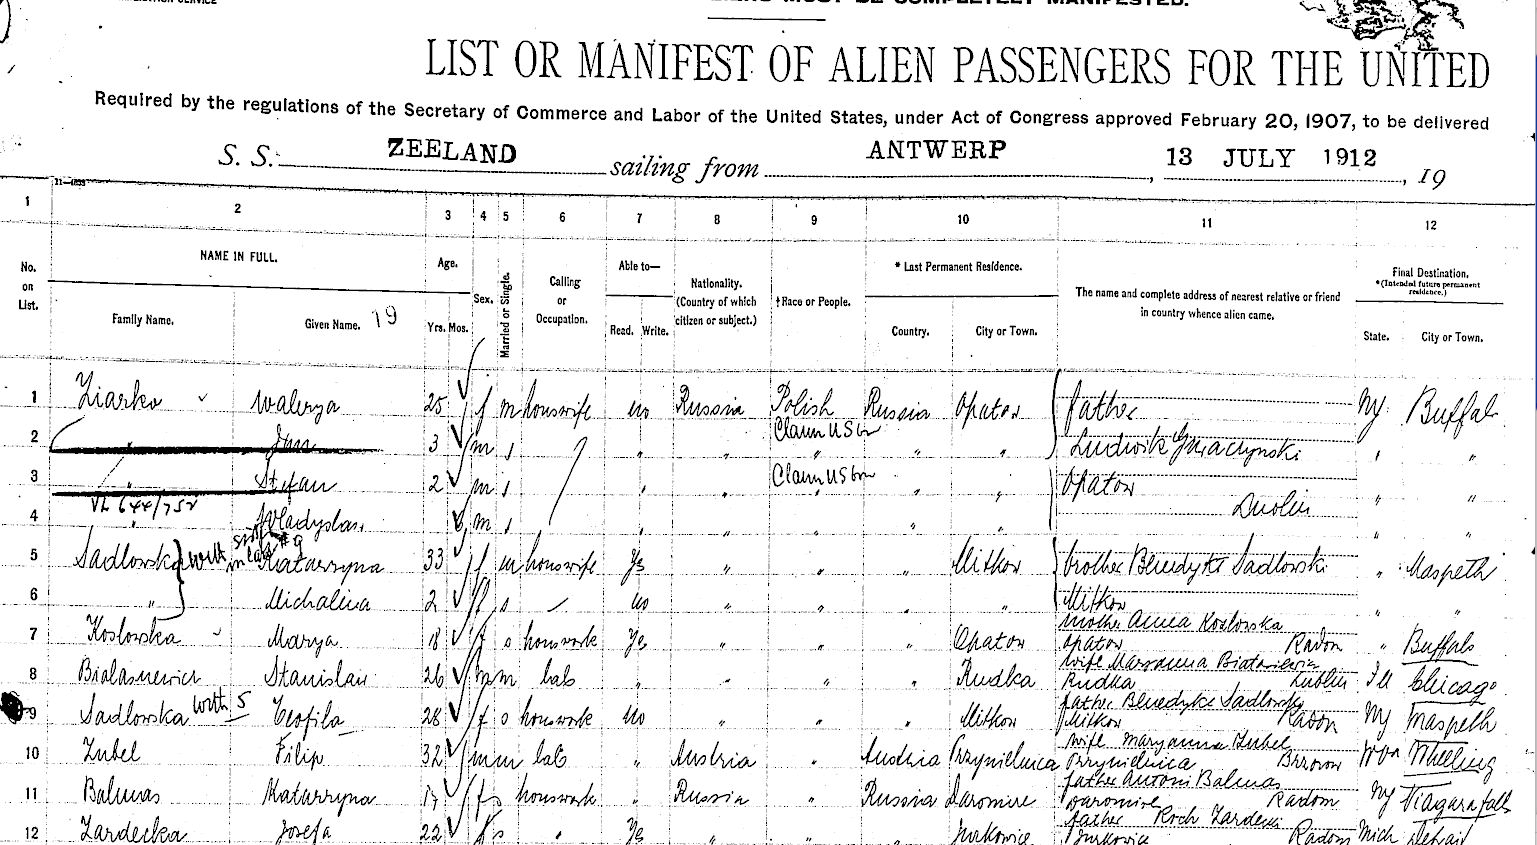 LIST OR MANIFEST OF ALIEN PASSENGERS FOR THE UNITED
Required by the regulations of the Secretary of Commerce and Labor of the United States, under Act of Congress approved February 20, 1907, to be delivered
S. S. ZEELAND sailing from ANTWERP, 13 JULY 1912, 19
1 2 3 4 5 6 7 8 9 10 11 12
No. on List. NAME IN FULL. Age. Sex. Married or Single. Calling or Occupation. Able to— Nationality. (Country of which citizen or subject.) †Race or People. * Last Permanent Residence. The name and complete address of nearest relative or friend in country whence alien came. Final Destination. *(Intended future permanent residence.)
Family Name. Given Name. 19 Yrs. Mos. Read. Write. Country. City or Town. State. City or Town.
1 Ziarko Walerya 25 f m houswife no Russia Polish Russia Opatow father NY Buffalo
2 " Jan 3 m s " " Claim US born " " " Ludwik " "
3 " Stefan 2 m s " " Claim US born " " " Opatow Lublin " "
4 " Wladyslaw m s " " " " " "
5 Sadlowska with Katarzyna 33 f m houswife Ye " " " Mitkow brother Benedykt Sadlowski " Maspeth
6 " Michalina 2 f s no " " " " Mitkow " "
7 Koslowska Marya 18 f s houswork Ye " " " Opatow mother Anna Koslowska Opatow Radon " Buffalo
8 Bialasiewicz Stanislaw 26 m m lab " " " " Rudka wife Maryanna Rudka Lublin Ill Chicago
9 Sadlowska with 5 Teofila 28 f s houswork no " " " Mitkow father Benedykt Sadlowsky Mitkow Radon NY Maspeth
10 Zubel Filip 32 m m lab " Austria " Austria wife Maryanna Zubel Brzozow Wheeling
11 Balmas Katarzyna 17 f s houswork " Russia " Russia Daromire father Antoni Balmas Daromire Radom NY Niagarafalls
12 Zardecka Josefa 22 f s " Ye " " " Jurkowice father Roch Zardecki Jurkowice Radom Mich Detroit